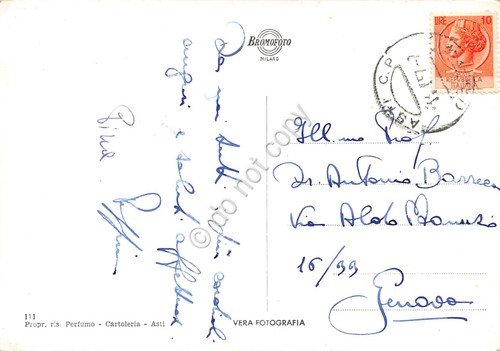 BROMOFOTO
MILANO
LIRE 10
ASTI C.P.
Da noi tutti i più cordiali
auguri e saluti affettuosi
Pina
Ill.mo Prof.
Dr. Antonio Barreca
Via Aldo Manuzio
16/99
Genova
do not copy
111
Propr. ris. Perfumo - Cartoleria - Asti
VERA FOTOGRAFIA